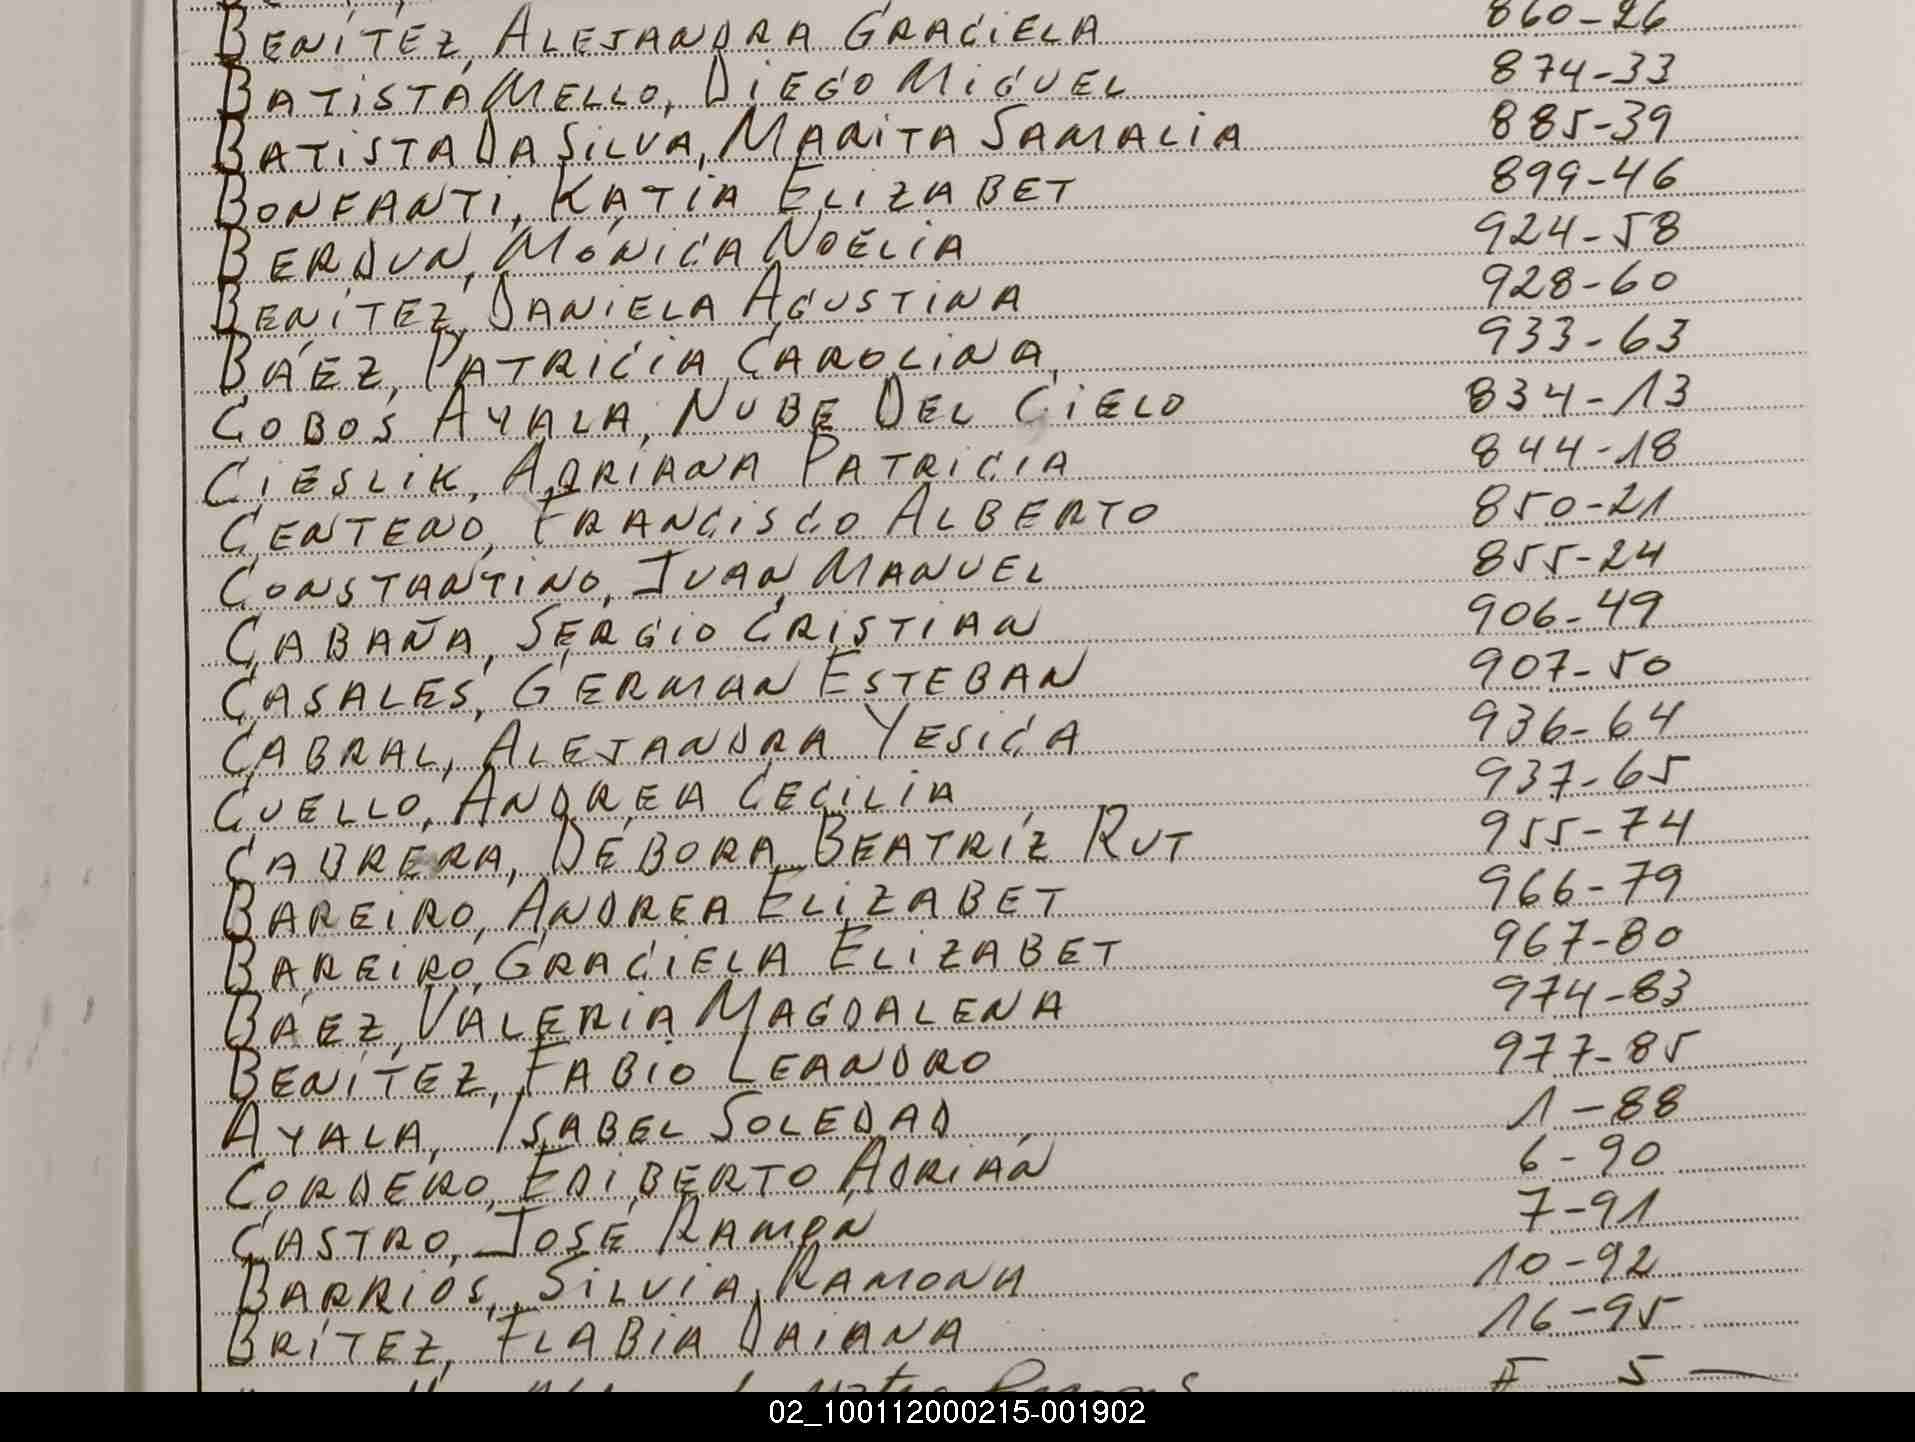 BENÍTEZ, ALEJANDRA GRACIELA 860-26
BATISTA MELLO, DIEGO MIGUEL 874-33
BATISTA DA SILVA, MARITA SAMALIA 885-39
BONFANTI, KATIA ELIZABET 899-46
BERDUN, MÓNICA NOELIA 924-58
BENÍTEZ, DANIELA AGUSTINA 928-60
BÁEZ, PATRICIA CAROLINA 933-63
COBOS AYALA, NUBE DEL CIELO 834-13
CIESLIK, ADRIANA PATRICIA 844-18
CENTENO, FRANCISCO ALBERTO 850-21
CONSTANTINO, JUAN MANUEL 855-24
CABAÑA, SERGIO CRISTIAN 906-49
CASALES, GERMAN ESTEBAN 907-50
CABRAL, ALEJANDRA YESICA 936-64
CUELLO, ANDREA CECILIA 937-65
CABRERA, DÉBORA BEATRÍZ RUT 955-74
BAREIRO, ANDREA ELIZABET 966-79
BAREIRO, GRACIELA ELIZABET 967-80
BÁEZ, VALERIA MAGDALENA 974-83
BENÍTEZ, FABIO LEANDRO 977-85
AYALA, ISABEL SOLEDAD 1-88
CORDERO, EDIBERTO ADRIÁN 6-90
CASTRO, JOSÉ RAMÓN 7-91
BARRIOS, SILVIA RAMONA 10-92
BRÍTEZ, FLABIA DAIANA 16-95
02_100112000215-001902